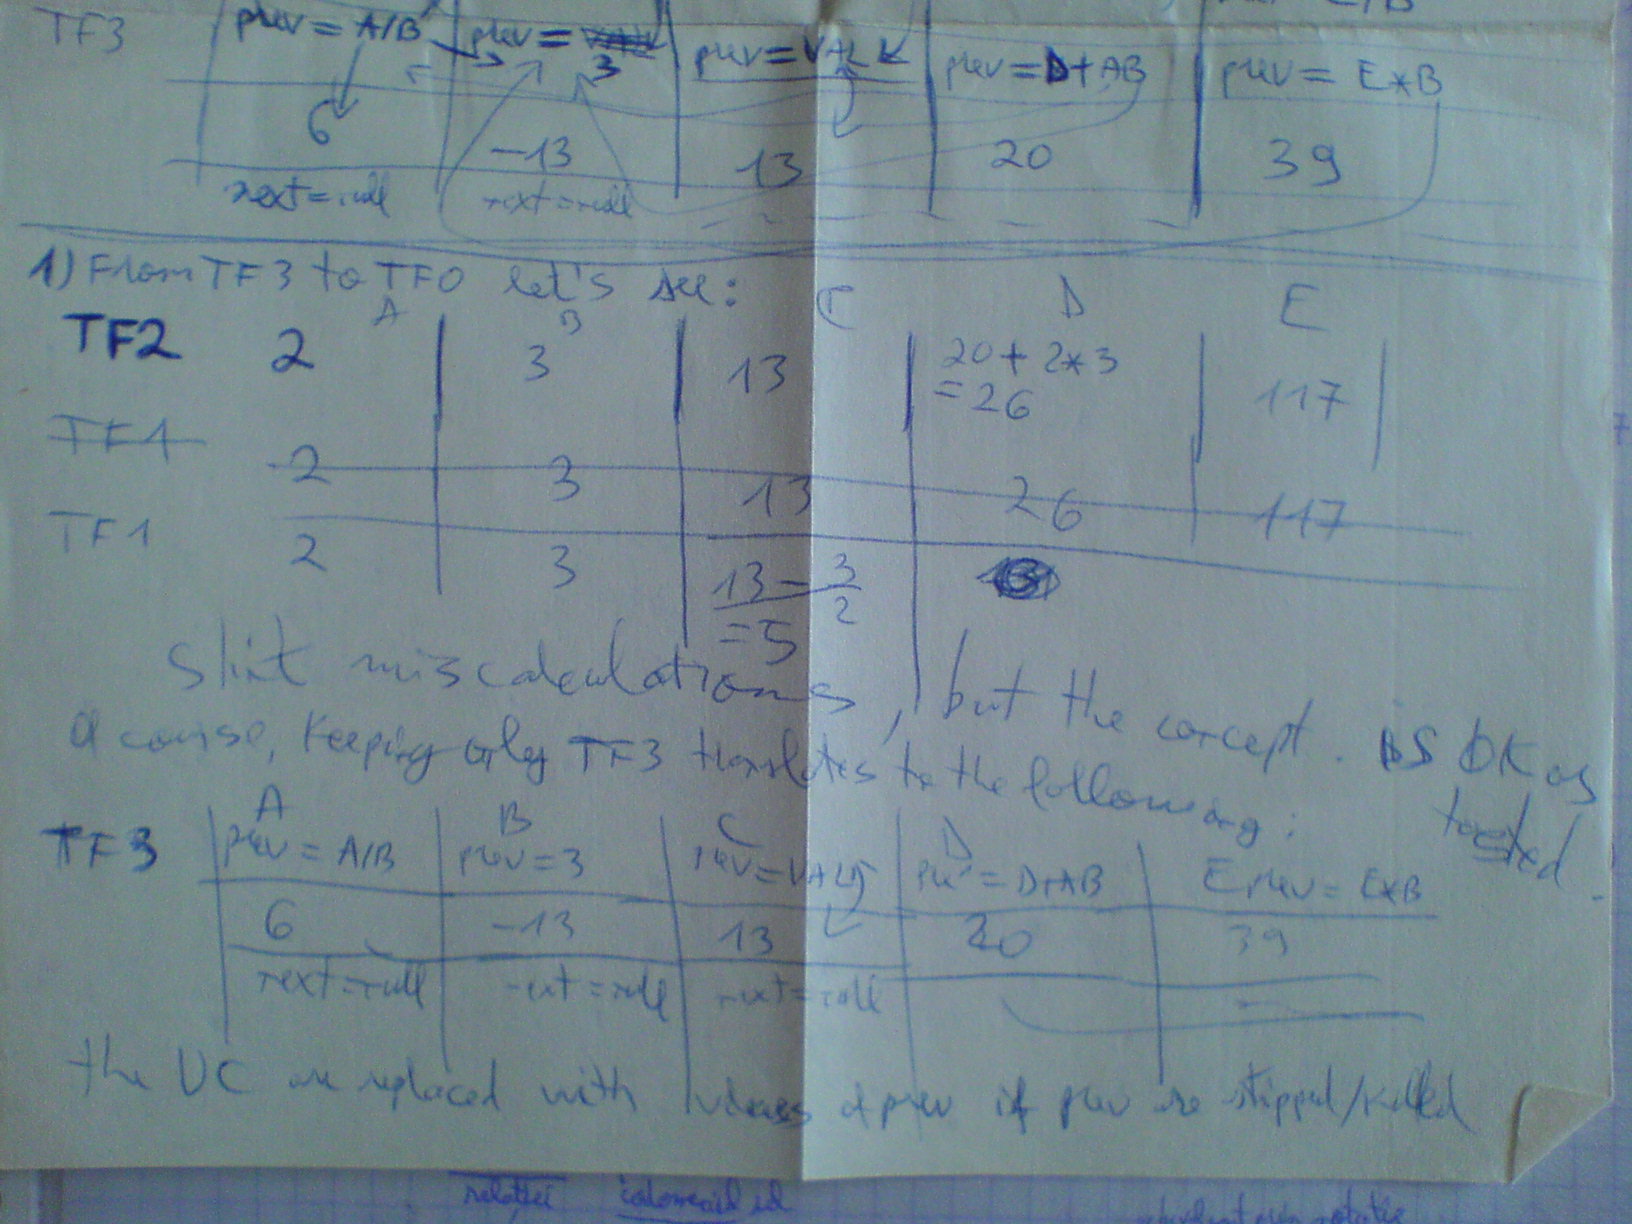 TF3 prev = A/B prev = 3 prev = VAL prev = D+AB prev = E*B
6 -13 13 20 39
next = null next = null
1) From TF3 to TF0 let's see:
A B C D E
TF2 2 3 13 20 + 2*3 117
= 26
TF1 2 3 13 26 117
TF1 2 3 13 - 3/2
= 5
Shit miscalculations, but the concept. is OK as
a course, keeping only TF3 translates to the following: tested.
A B C D
TF3 prev = A/B prev = 3 prev = VAL prev = D+AB E prev = E*B
6 -13 13 20 39
next = null next = null next = null
the UC are replaced with of prev if prev are stripped/killed
relației